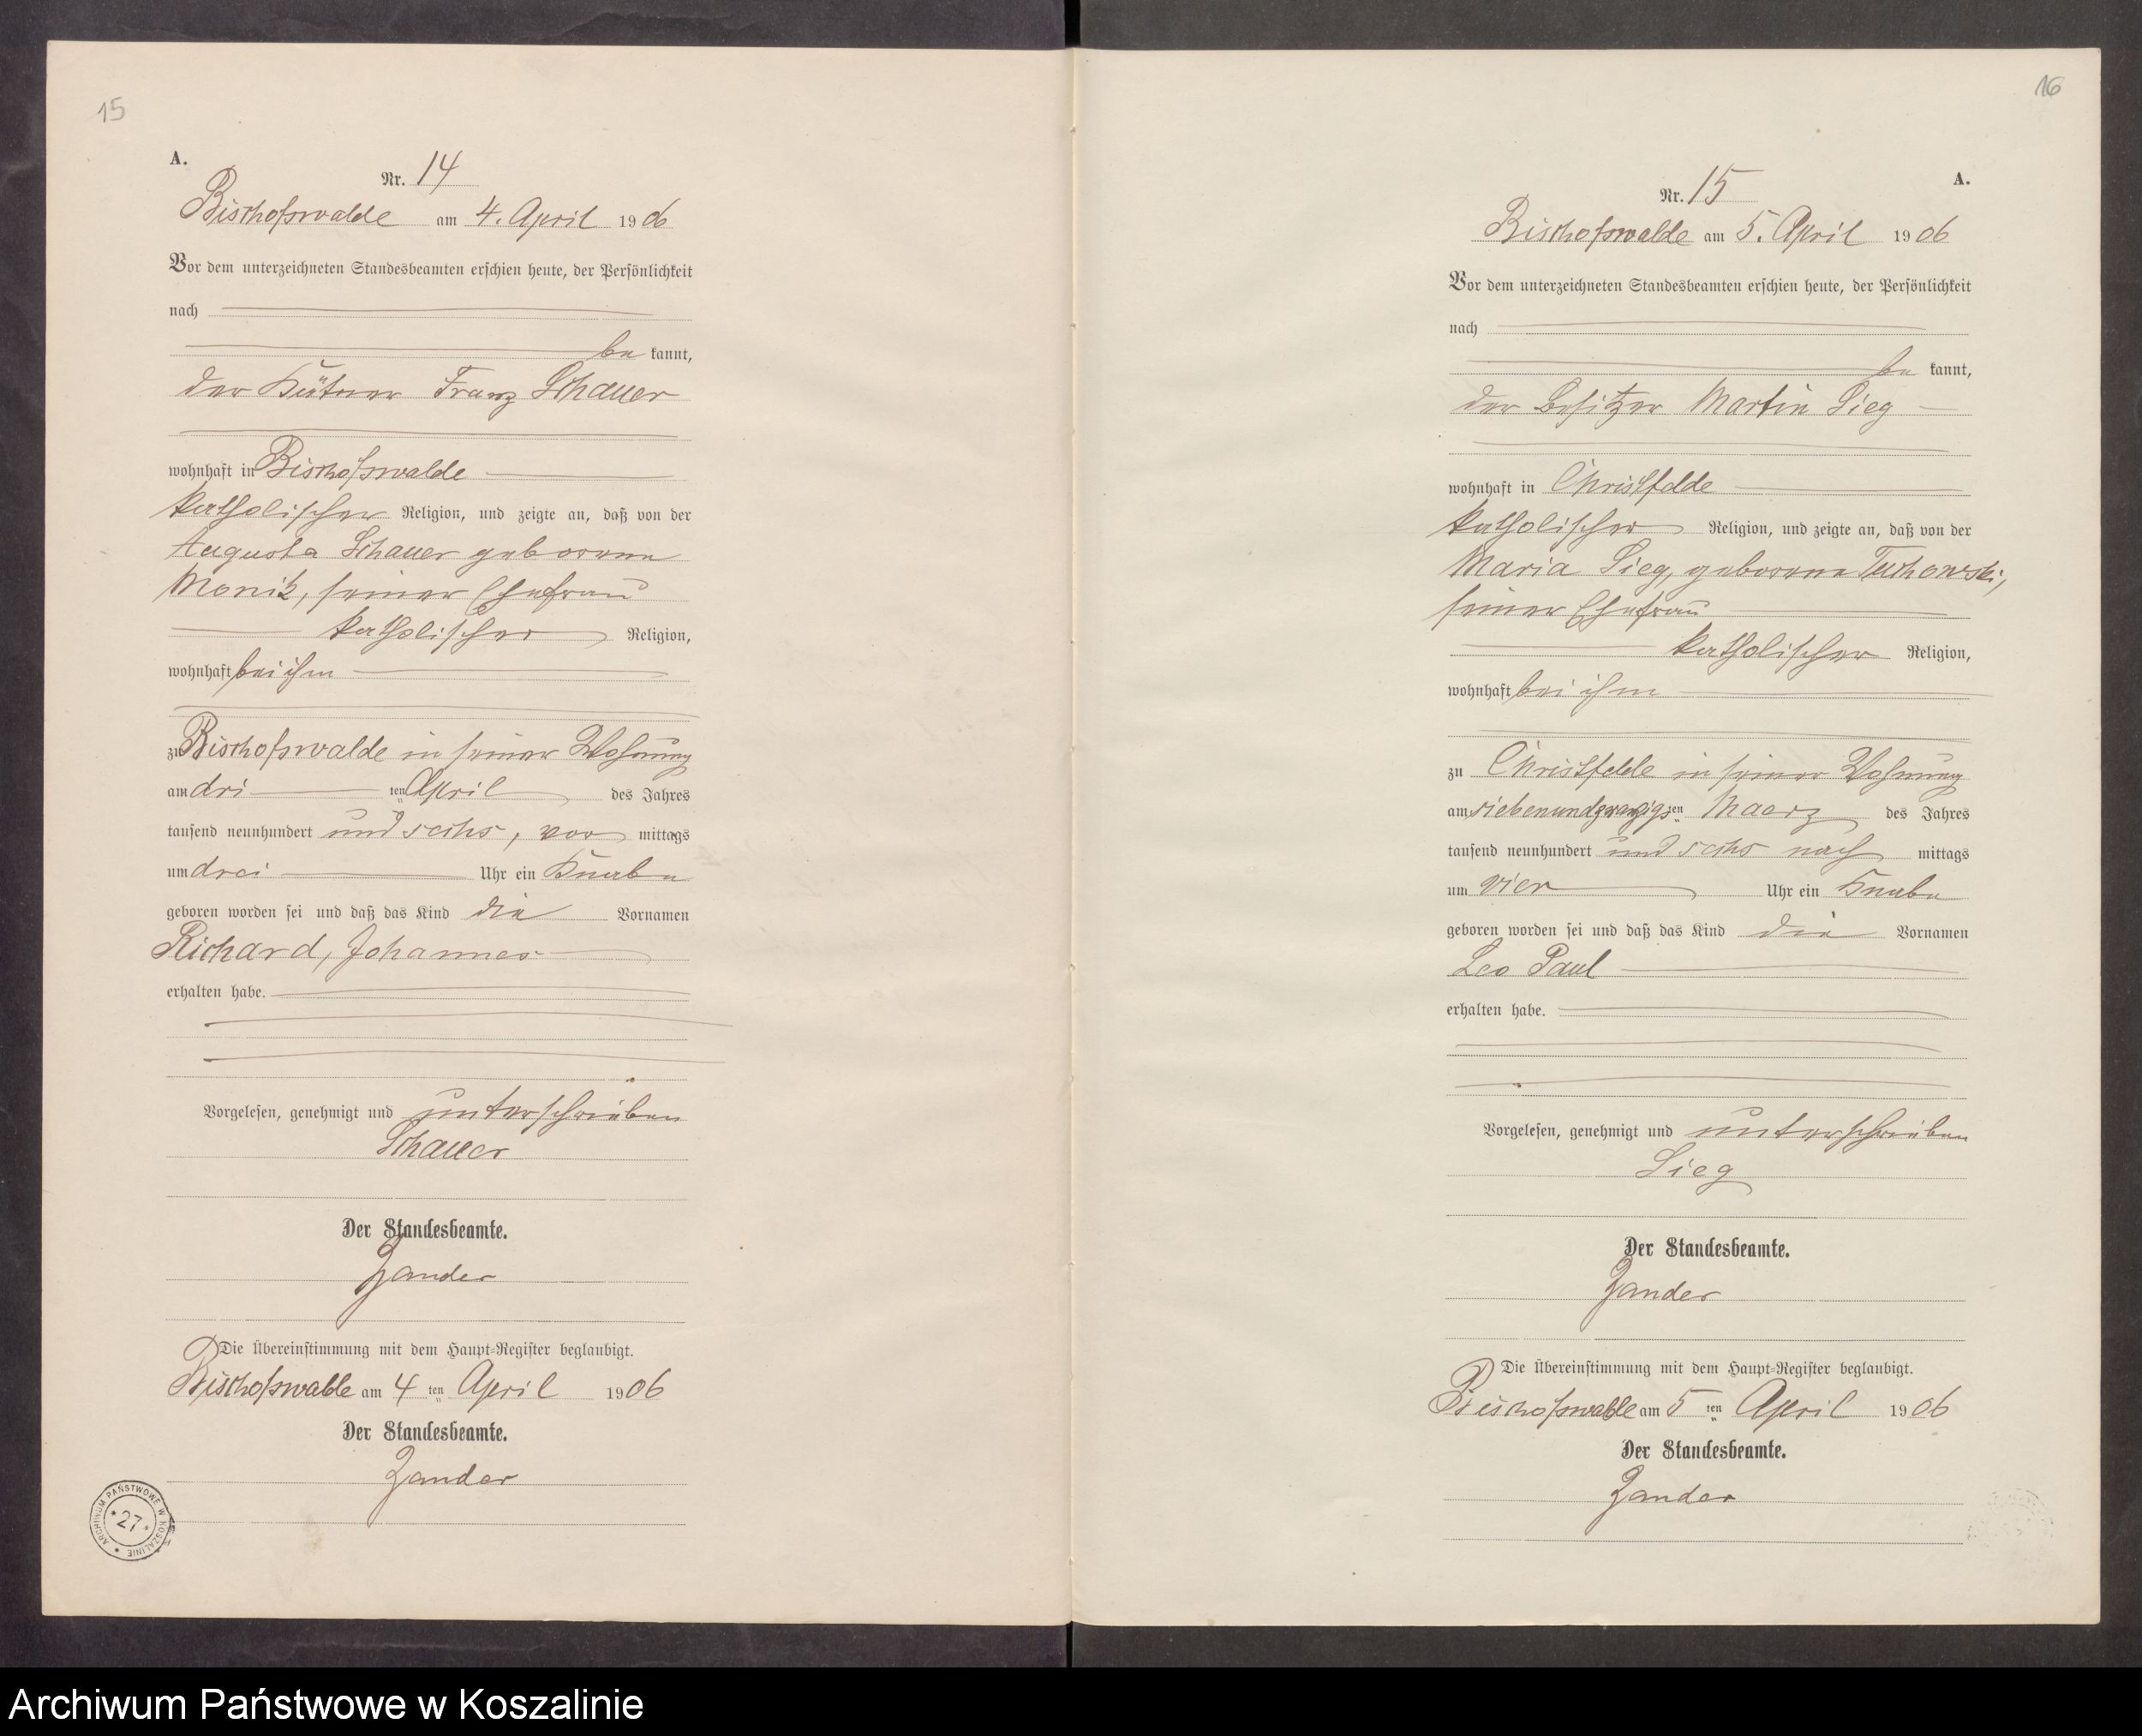 15
A.
Nr. 14
Bischofswalde am 4. April 1906
Vor dem unterzeichneten Standesbeamten erschien heute, der Persönlichkeit
nach
be kannt,
der Kätner Franz Schauer
wohnhaft in Bischofswalde
katholischer Religion, und zeigte an, daß von der
Augusta Schauer geborene
Monik, seiner Ehefrau
katholischer Religion,
wohnhaft bei ihm
zu Bischofswalde in seiner Wohnung
am dri ten April des Jahres
tausend neunhundert und sechs, vor mittags
um drei Uhr ein Knabe
geboren worden sei und daß das Kind die Vornamen
Richard, Johannes
erhalten habe.
Vorgelesen, genehmigt und unterschrieben
Schauer
Der Standesbeamte.
Zander
Die Übereinstimmung mit dem Haupt-Register beglaubigt.
Bischofswalde am 4 ten April 1906
Der Standesbeamte.
Zander
ARCHIWUM PAŃSTWOWE W KOSZALINIE
27
16
A.
Nr. 15
Bischofswalde am 5. April 1906
Vor dem unterzeichneten Standesbeamten erschien heute, der Persönlichkeit
nach
be kannt,
der Besitzer Martin Sieg
wohnhaft in Christfelde
katholischer Religion, und zeigte an, daß von der
Maria Sieg, geborene Tuchowski,
seiner Ehefrau
katholischer Religion,
wohnhaft bei ihm
zu Christfelde in seiner Wohnung
am siebenundzwanzigsten Maerz des Jahres
tausend neunhundert und sechs nach mittags
um vier Uhr ein Knabe
geboren worden sei und daß das Kind die Vornamen
Leo Paul
erhalten habe.
Vorgelesen, genehmigt und unterschrieben
Sieg
Der Standesbeamte.
Zander
Die Übereinstimmung mit dem Haupt-Register beglaubigt.
Bischofswalde am 5 ten April 1906
Der Standesbeamte.
Zander
Archiwum Państwowe w Koszalinie